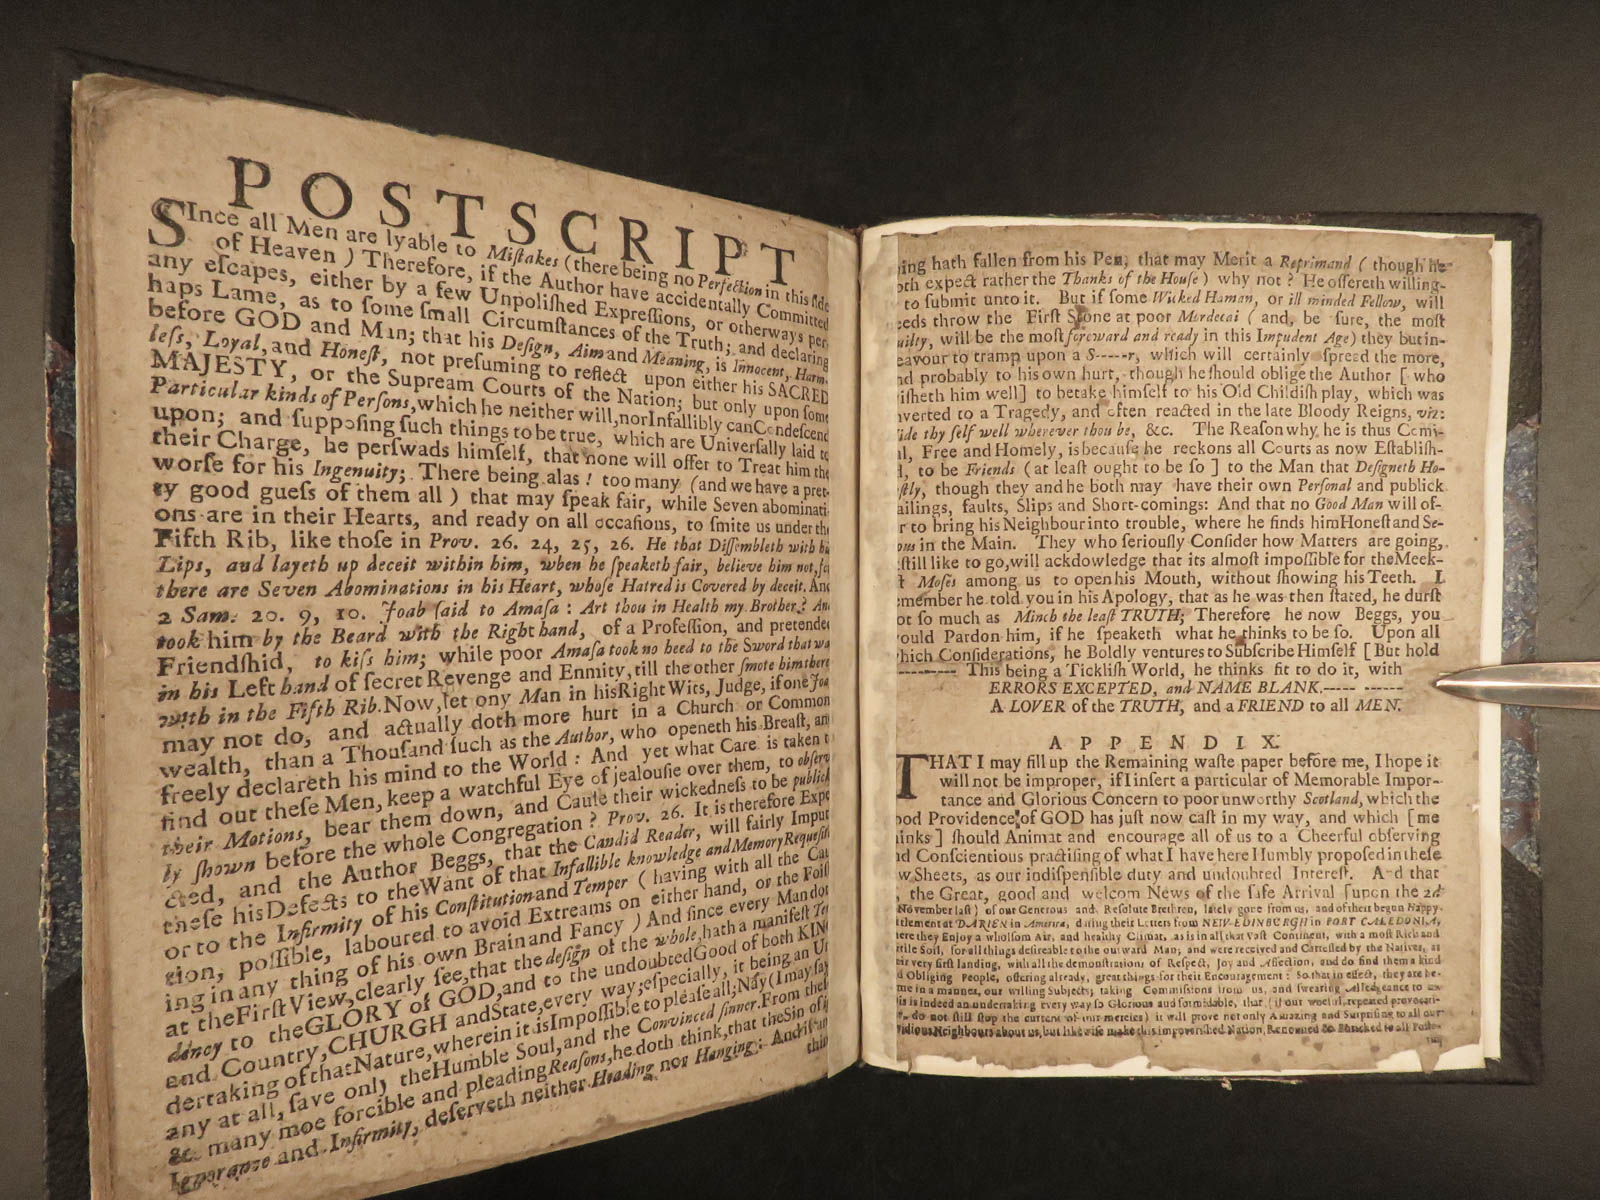 POSTSCRIPT
SInce all Men are lyable to Mistakes (there being no Perfection in this side
of Heaven ) Therefore, if the Author have accidentally Committed
any eſcapes, either by a few Unpoliſhed Expreſſions, or otherways per-
haps Lame, as to ſome ſmall Circumſtances of the Truth; and declaring
before GOD and Man; that his Deſign, Aim and Meaning, is Innocent, Harm-
leſs, Loyal, and Honeſt, not preſuming to reflect upon either his SACRED
MAJESTY, or the Supream Courts of the Nation; but only upon ſome
Particular kinds of Perſons, which he neither will, nor Infallibly can Condeſcend
upon; and ſuppoſing ſuch things to be true, which are Univerſally laid to
their Charge, he perſwads himſelf, that none will offer to Treat him the
worſe for his Ingenuity; There being alas ! too many (and we have a pret-
ty good gueſs of them all ) that may ſpeak fair, while Seven abominati-
ons are in their Hearts, and ready on all occaſions, to ſmite us under the
Fifth Rib, like thoſe in Prov. 26. 24, 25, 26. He that Diſſembleth with his
Lips, and layeth up deceit within him, when he ſpeaketh fair, believe him not, for
there are Seven Abominations in his Heart, whoſe Hatred is Covered by deceit. And
2 Sam. 20. 9, 10. Joab ſaid to Amaſa : Art thou in Health my Brother? And
took him by the Beard with the Right hand, of a Profeſſion, and pretended
Friendſhid, to kiſs him; while poor Amaſa took no heed to the Sword that was
in his Left hand of ſecret Revenge and Enmity, till the other ſmote him there
with in the Fifth Rib. Now, let ony Man in his Right Wits, Judge, if one Joab
may not do, and actually doth more hurt in a Church or Common
wealth, than a Thouſand ſuch as the Author, who openeth his Breaſt, and
freely declareth his mind to the World : And yet what Care is taken to
find out theſe Men, keep a watchful Eye of jealouſie over them, to obſerve
their Motions, bear them down, and Cauſe their wickedneſs to be publick
ly ſhown before the whole Congregation ? Prov. 26. It is therefore Expe
cted, and the Author Beggs, that the Candid Reader, will fairly Impute
theſe his Defects to the Want of that Infallible knowledge and Memory Requeſite
or to the Infirmity of his Conſtitution and Temper ( having with all the Cau
tion, poſſible, laboured to avoid Extreams on either hand, or the Foiſt
ing in any thing of his own Brain and Fancy ) And ſince every Man doth
at the Firſt View, clearly ſee, that the deſign of the whole, hath a manifeſt Ten
dency to the GLORY of GOD, and to the undoubted Good of both KING
and Country, CHURGH and State, every way; eſpecially, it being an Un
dertaking of that Nature, wherein it is Impoſſible to pleaſe all; Nay (I may ſay
any at all, ſave only the Humble Soul, and the Convinced ſinner. From theſe
&c many moe forcible and pleading Reaſons, he doth think, that the Sin of
Ignorance and Infirmity, deſerveth neither Heading nor Hanging: And if any
thing
ing hath fallen from his Pen; that may Merit a Reprimand ( though he
oth expect rather the Thanks of the Houſe ) why not ? He offereth willing-
to ſubmit unto it. But if ſome Wicked Haman, or ill minded Fellow, will
eeds throw the Firſt Stone at poor Mordecai ( and, be ſure, the moſt
uilty, will be the moſt foreward and ready in this Impudent Age) they but in-
eavour to tramp upon a S-----r, which will certainly ſpreed the more,
nd probably to his own hurt, though he ſhould oblige the Author [ who
iſheth him well] to betake himſelf to his Old Childiſh play, which was
nverted to a Tragedy, and often reacted in the late Bloody Reigns, viz:
ide thy ſelf well wherever thou be, &c. The Reaſon why he is thus Comi-
al, Free and Homely, is becauſe he reckons all Courts as now Eſtabliſh-
d, to be Friends (at leaſt ought to be ſo ] to the Man that Deſigneth Ho-
eſtly, though they and he both may have their own Perſonal and publick
ailings, faults, Slips and Short-comings: And that no Good Man will of-
r to bring his Neighbour into trouble, where he finds him Honeſt and Se-
ous in the Main. They who ſeriouſly Conſider how Matters are going,
ſtill like to go, will ackdowledge that its almoſt impoſſible for the Meek-
t Moſes among us to open his Mouth, without ſhowing his Teeth. I
emember he told you in his Apology, that as he was then ſtated, he durſt
ot ſo much as Minch the leaſt TRUTH; Therefore he now Beggs, you
ould Pardon him, if he ſpeaketh what he thinks to be ſo. Upon all
hich Conſiderations, he Boldly ventures to Subſcribe Himſelf [ But hold
---------- This being a Tickliſh World, he thinks fit to do it, with
ERRORS EXCEPTED, and NAME BLANK.----- ------
A LOVER of the TRUTH, and a FRIEND to all MEN.
APPENDIX.
THAT I may fill up the Remaining waſte paper before me, I hope it
will not be improper, if I inſert a particular of Memorable Impor-
tance and Glorious Concern to poor unworthy Scotland, which the
ood Providence of GOD has juſt now caſt in my way, and which [ me
inks ] ſhould Animat and encourage all of us to a Cheerful obſerving
nd Conſcientious practiſing of what I have here Humbly propoſed in theſe
w Sheets, as our indiſpenſible duty and undoubted Intereſt. And that
, the Great, good and welcom News of the ſafe Arrival [upon the 2d
November laſt ) of our Generous and Reſolute Brethren, lately gone from us, and of their begun Happy
ttlement at DARIEN in America, dating their Letters from NEW-EDINBURGH in PORT CALEDONIA,
here they Enjoy a wholſom Air, and healthy Climat, as is in all that vaſt Continent, with a moſt Rich and
rtile Soil, for all things deſireable to the outward Man; and were received and Careſſed by the Natives, at
eir very firſt landing, with all the demonſtrations of Reſpect, Joy and Affection, and do find them a kind
d Obliging People, offering already, great things for their Encouragement : So that in effect, they are be-
me in a manner, our willing Subjects; taking Commiſſions from us, and ſwearing Alledgeance to us
his is indeed an undertaking every way ſo Glorious and formidable, that ( if our woeful, repeated provocati-
, do not ſtill ſtop the current of our mercies) it will prove not only Amazing and Surpriſing to all our
vidious Neighbours about us, but likewiſe make this impoveriſhed Nation, Renowned &